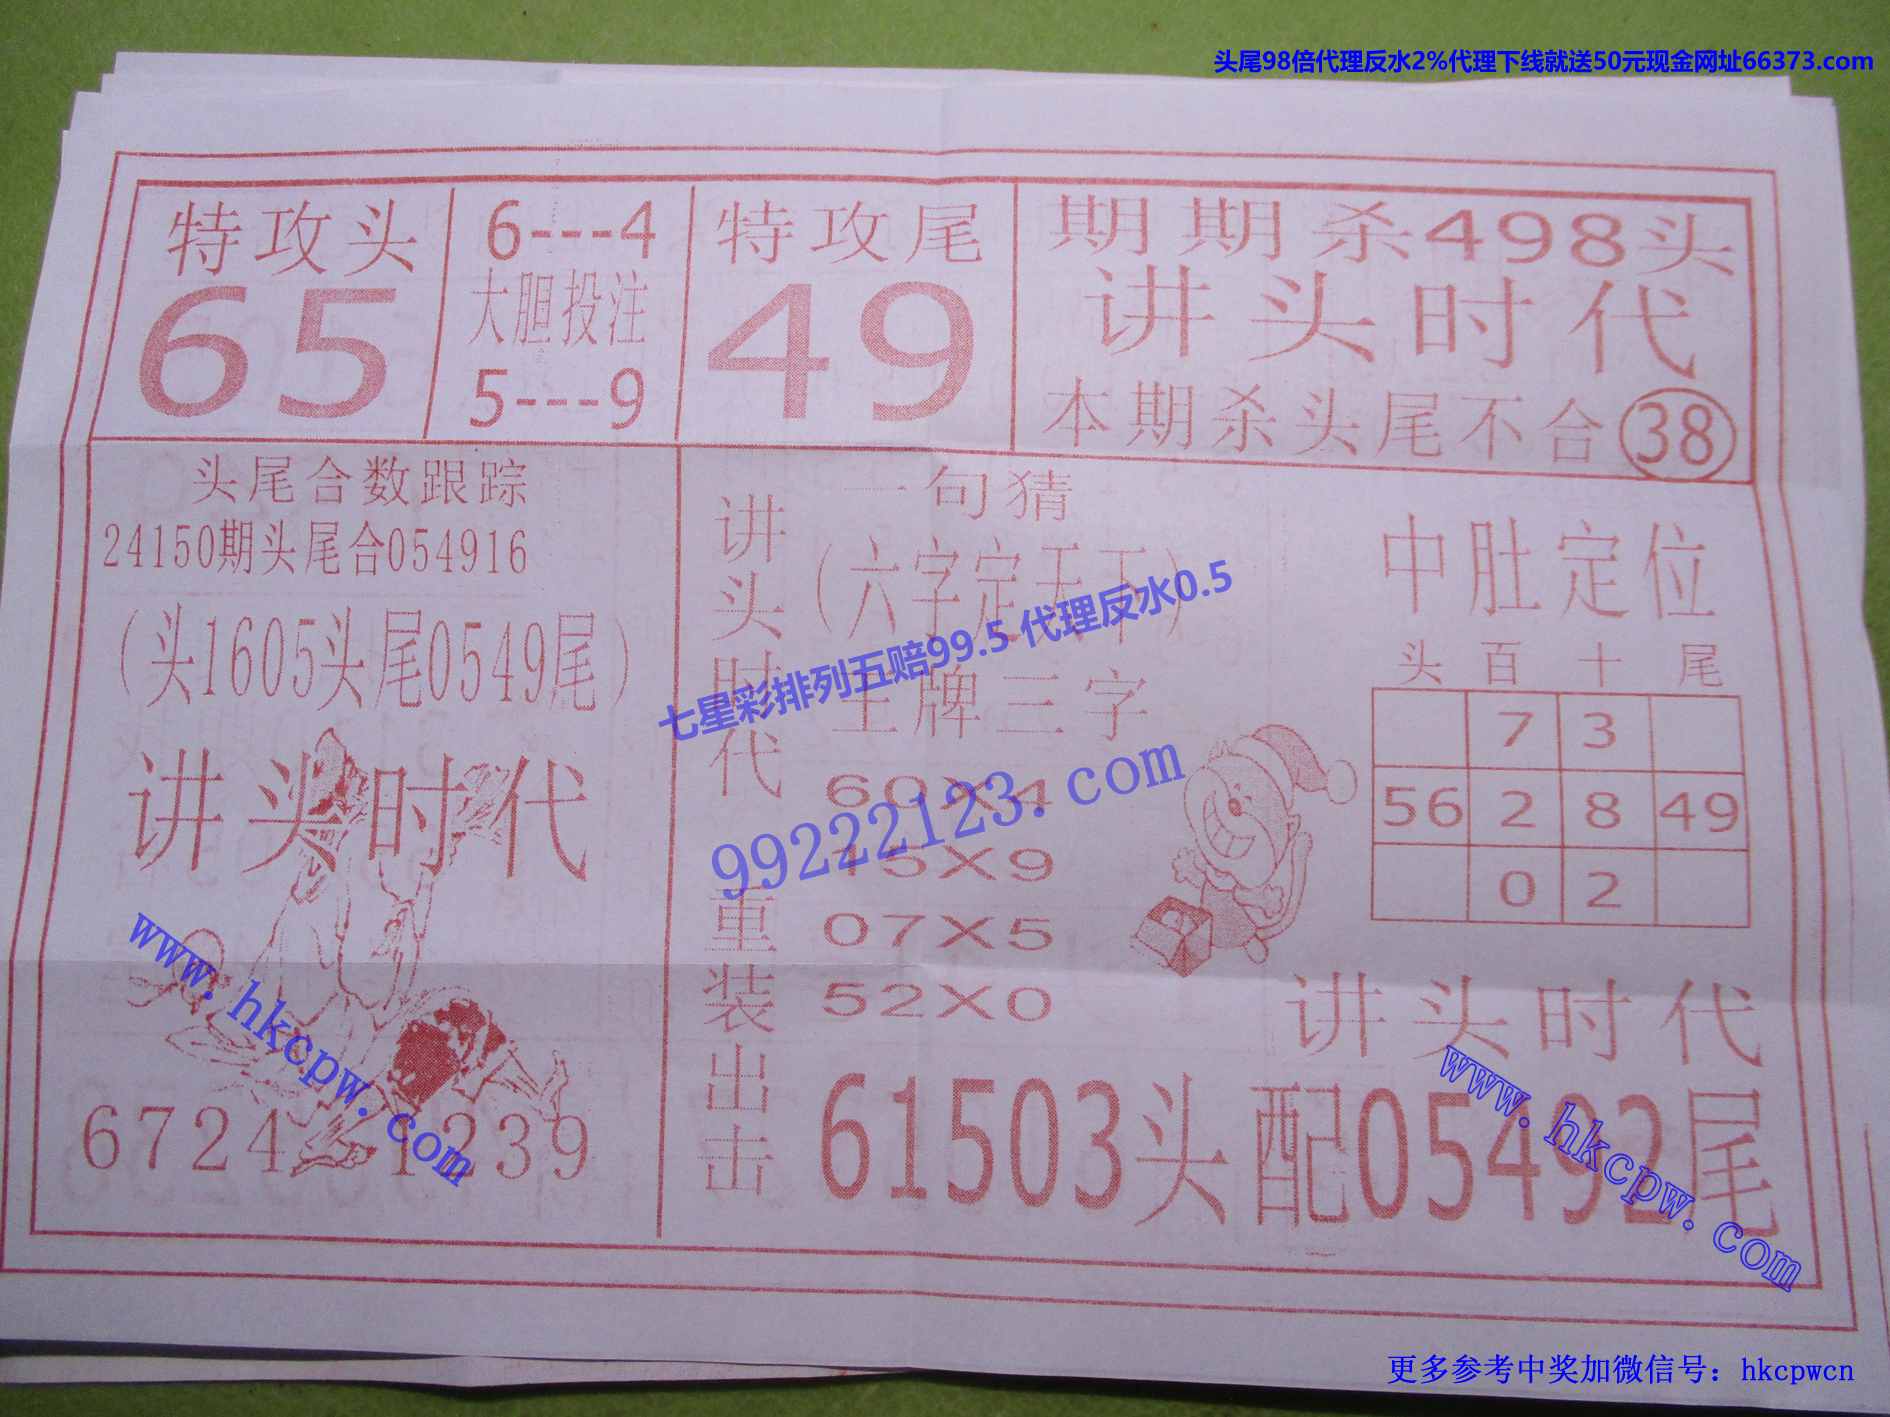 头尾98倍代理反水2%代理下线就送50元现金网址66373.com
特攻头
65
6---4
大胆投注
5---9
特攻尾
49
期期杀498头
讲头时代
本期杀头尾不合38
头尾合数跟踪
24150期头尾合054916
(头1605头尾0549尾)
讲头时代
6724 1239
讲头时代
重装出击
一句猜
(六字定天下)
王牌三字
60X4
75X9
07X5
52X0
中肚定位
头 百 十 尾
7 3
56 2 8 49
0 2
讲头时代
61503头配05492尾
七星彩排列五赔99.5 代理反水0.5
99222123.com
www.hkcpw.com
www.hkcpw.com
更多参考中奖加微信号：hkcpwcn